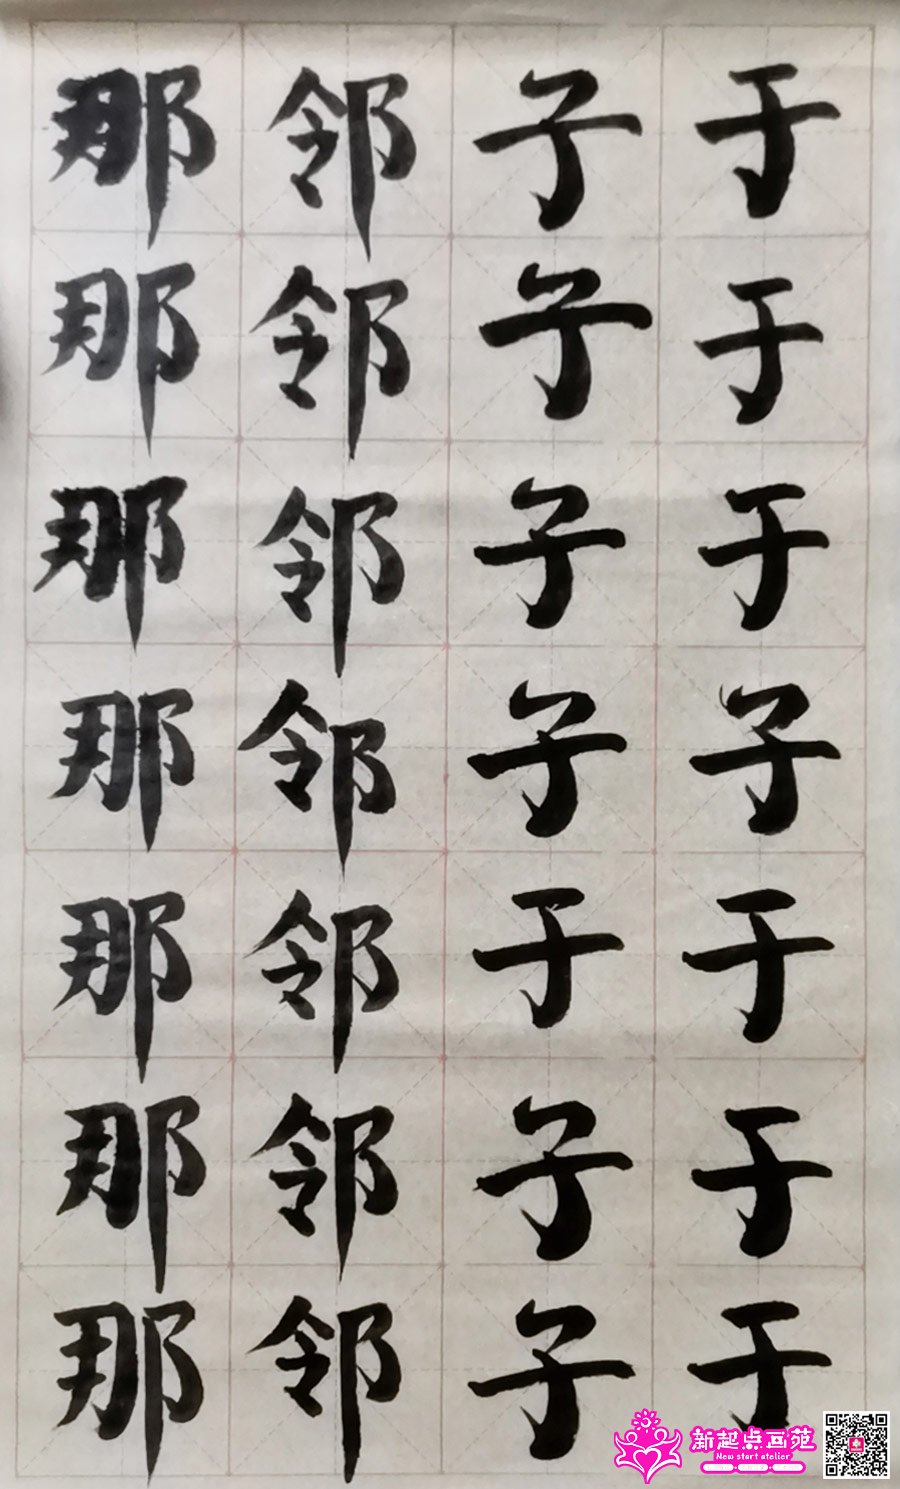 于于于子于于于
子子子子于子子
邻邻邻邻邻邻邻
那那那那那那那
新起点画苑
New start atelier